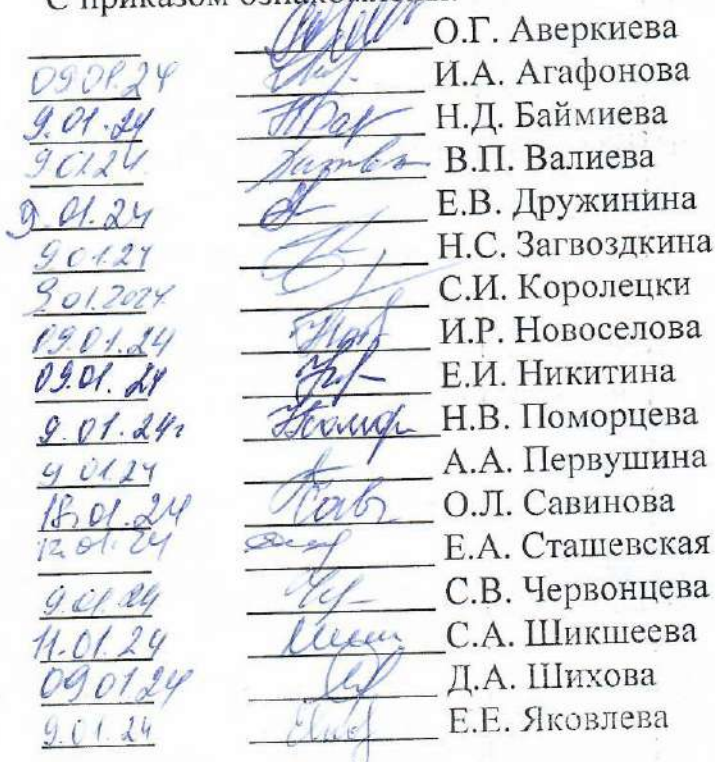 С приказом ознакомлены:
О.Г. Аверкиева
09.01.24 И.А. Агафонова
9.01.24 Н.Д. Баймиева
9.01.24 В.П. Валиева
9.01.24 Е.В. Дружинина
9.01.24 Н.С. Загвоздкина
9.01.2024 С.И. Королецки
09.01.24 И.Р. Новоселова
09.01.24 Е.И. Никитина
9.01.24г Н.В. Поморцева
9.01.24 А.А. Первушина
18.01.24 О.Л. Савинова
12.01.24 Е.А. Сташевская
9.01.24 С.В. Червонцева
11.01.24 С.А. Шикшеева
09.01.24 Д.А. Шихова
9.01.24 Е.Е. Яковлева